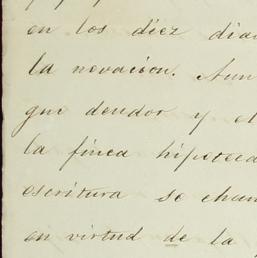 en los diez dias
la novacion. Aun
que deudor y el
la finca hipoteca
escritura se chan
en virtud de la